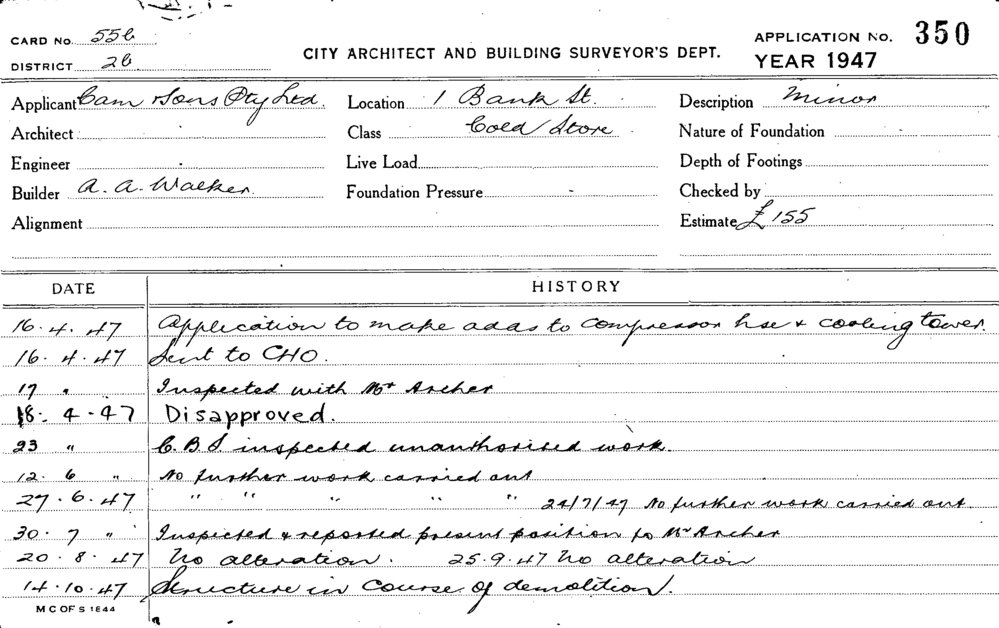 CARD No. 556
DISTRICT 26
CITY ARCHITECT AND BUILDING SURVEYOR'S DEPT.
APPLICATION No. 350
YEAR 1947
Applicant Cam & Sons Pty Ltd. Location 1 Bank St. Description Minor
Architect Class Cold Store Nature of Foundation
Engineer Live Load Depth of Footings
Builder A. A. Walker Foundation Pressure - Checked by
Alignment Estimate £155
DATE HISTORY
16.4.47 Application to make adds to compressor hse & cooling tower.
16.4.47 Sent to CHO.
17 " Inspected with Mr Archer
18.4.47 Disapproved.
23 " C.B.I. inspected unauthorised work.
12.6 " No further work carried out
27.6.47 " " " " " 24/7/47 No further work carried out
30.7 " Inspected & reported present position to Mr Archer
20.8.47 No alteration. 25.9.47 No alteration
14.10.47 Structure in course of demolition.
M C OF S 1844